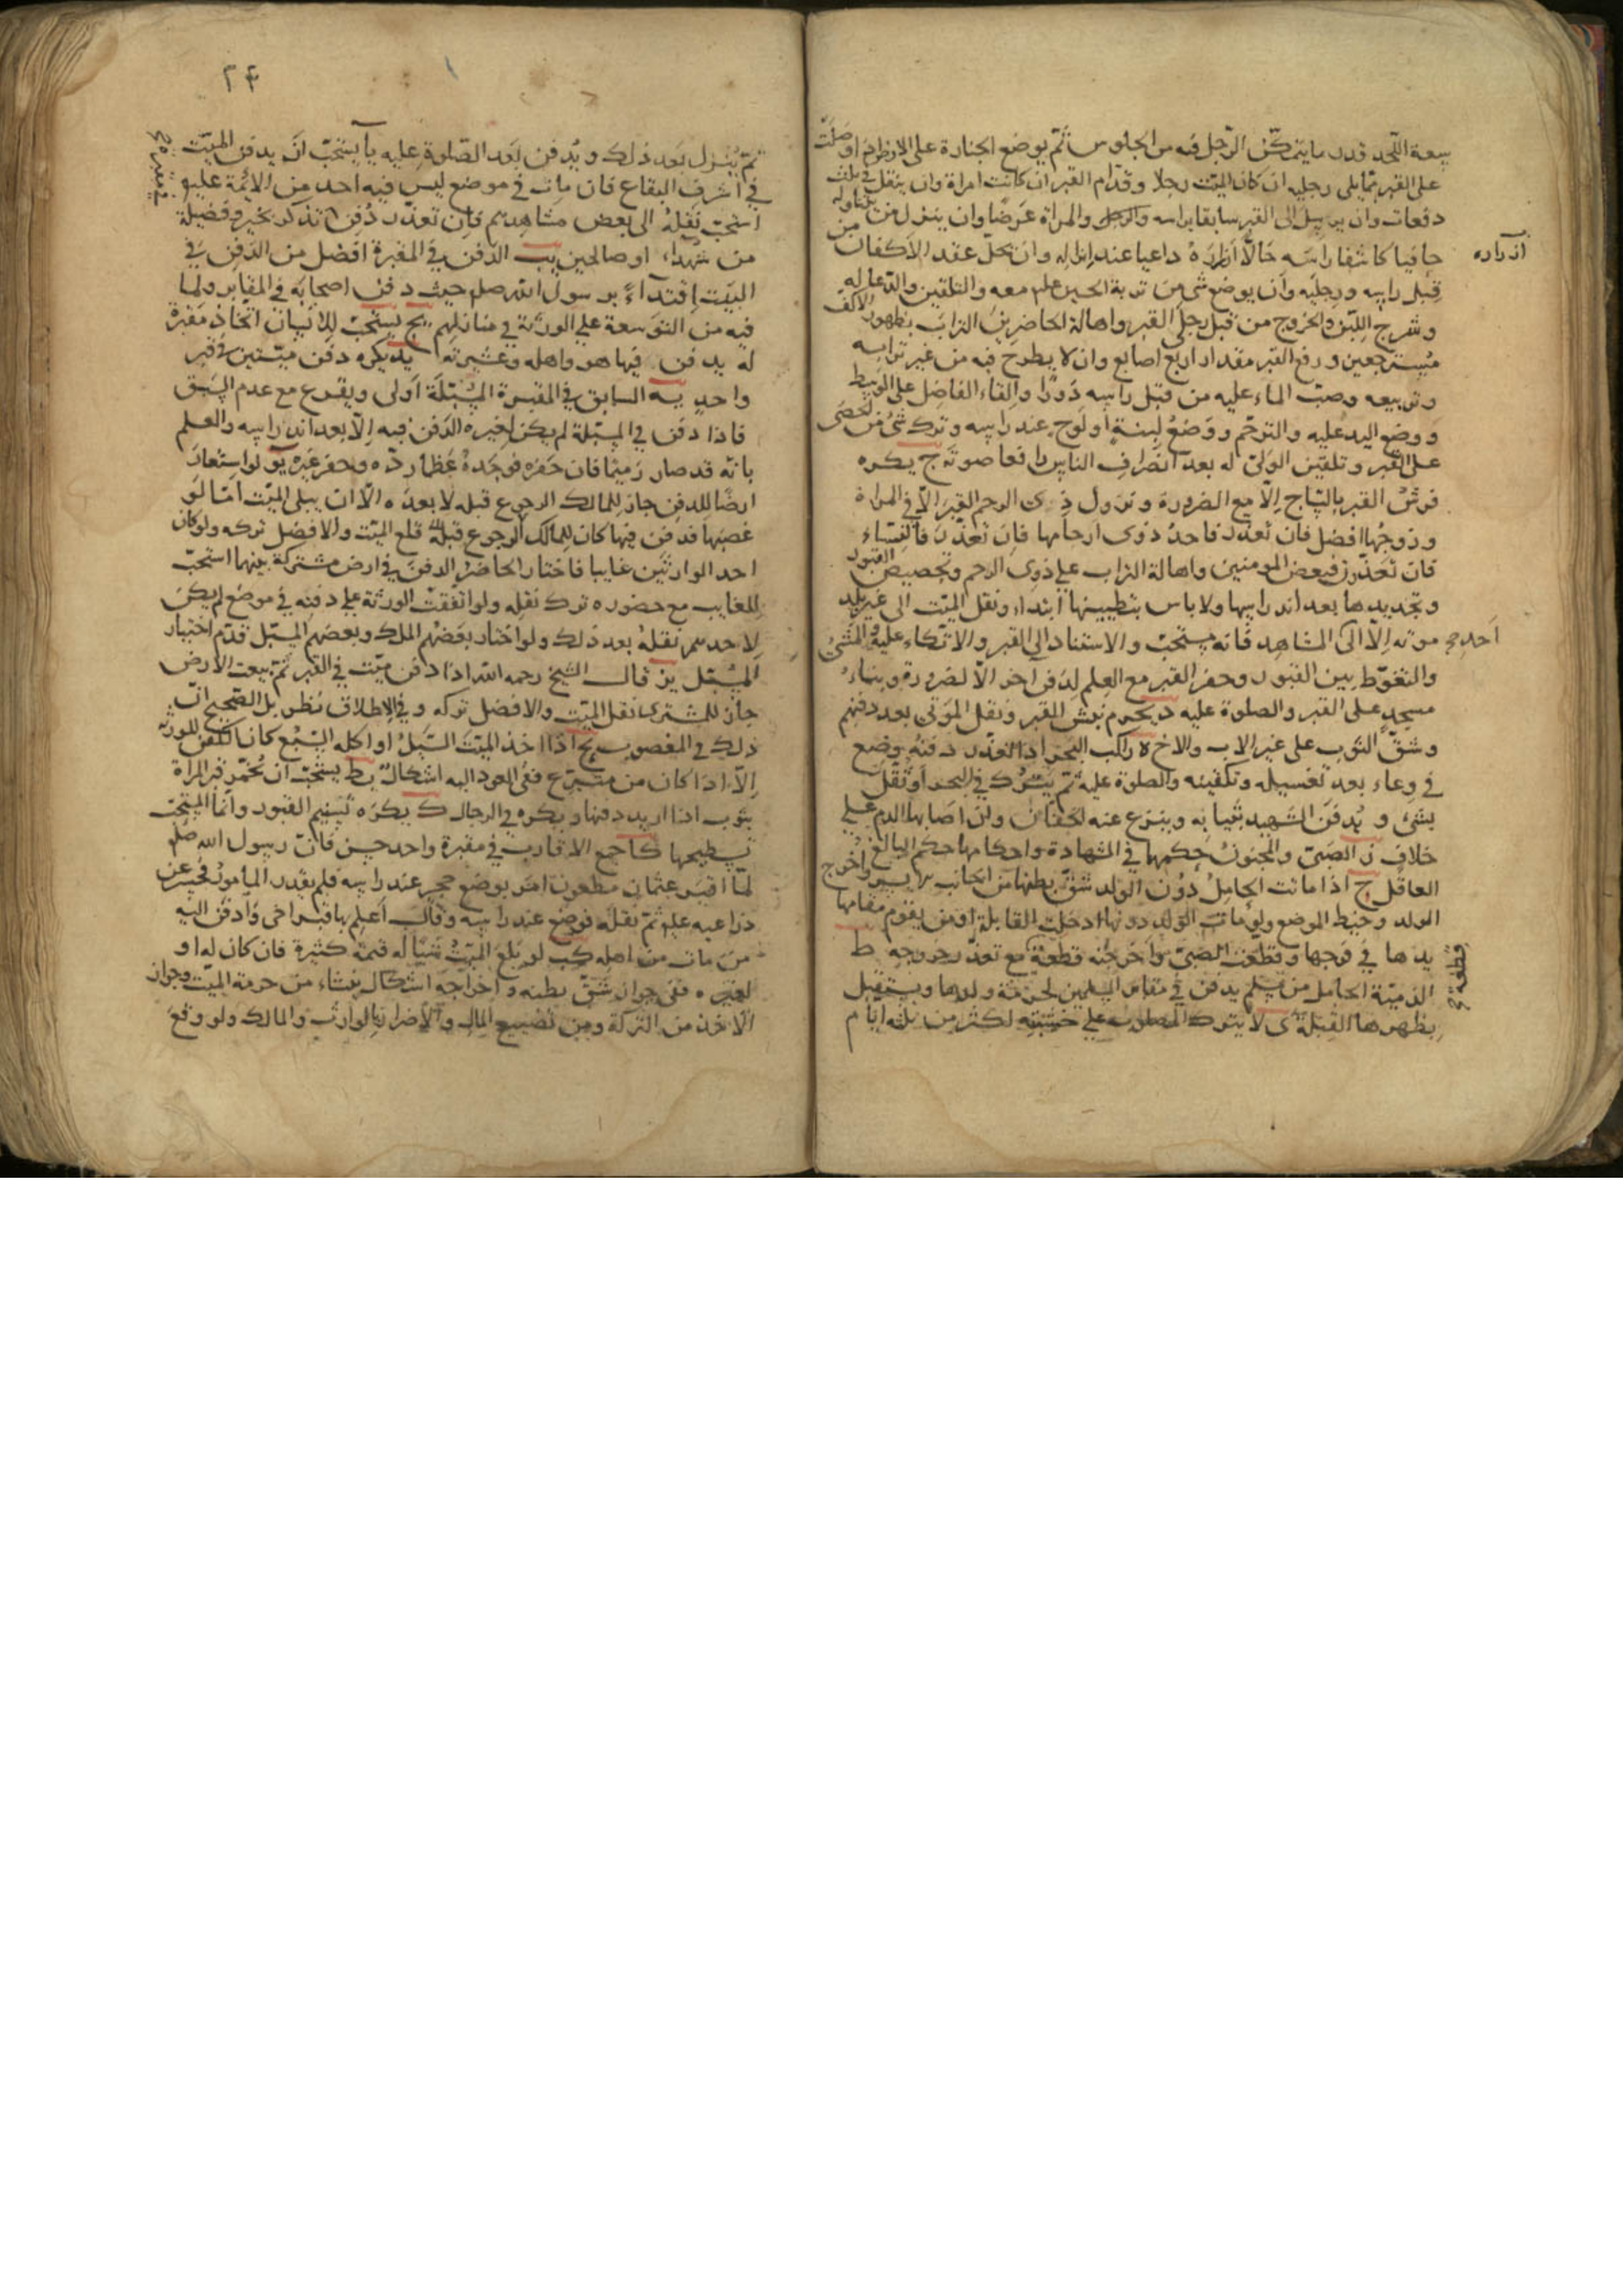 سعة اللحد قدر ما يتمكن الرجل فيه من الجلوس ثم يوضع الجنازة على الارض اذا وصلت
على القبر مما يلى رجليه ان كان الميت رجلا وقدام القبر ان كانت امراة وان ينقل في ثلث
دفعات وان يرسل الى القبر سابقا براسه والرجل والمراة عرضا وان ينزل من يتناوله
حافيا كاشفا راسه حالّا ازراره داعيا عند انزاله وان يحل عقد الاكفان من
قبل راسه ورجليه وان يوضع شى من تربة الحسين علم معه والتلقين والدعا له
وشرج اللبن والخروج من قبل رجلى القبر واهالة الحاضرين التراب بظهور الاكف
مسترجعين ورفع القبر مقدار اربع اصابع وان لا يطرح فيه من غير ترابه
وتربيعه وصب الماء عليه من قبل راسه دورا والقاء الفاضل على الوسط
ووضع اليد عليه والترحم ووضع لبنة او لوح عند راسه وترك شئ من الحصى
على القبر وتلقين الولى له بعد انصراف الناس رافعا صوته ج يكره
فرش القبر بالساج الا مع الضرورة ونزول ذى الرحم القبر الا في المراة
وزوجها افضل فان تعذر فاحد ذوى ارحامها فان تعذر فالنساء
فان تعذرن فبعض المومنين واهالة التراب على ذوى الرحم وتجصيص القبور
وتجديدها بعد اندراسها ولا باس بتطيينها ابتداء ونقل الميت الى غير بلد
موته الا الى المشاهد فانه يستحب والاستناد الى القبر والاتكاء عليه والمشى
والتغوط بين القبور وحفر القبر مع العلم لدفن اخر الا لضرورة وبناء
مسجد على القبر والصلوة عليه د يحرم نبش القبر ونقل الموتى بعد دفنهم
وشق الثوب على غير الاب والاخ ه راكب البحر اذا تعذر دفنه وضع
في وعاء بعد تغسيله وتكفينه والصلوة عليه ثم يترك في البحر او ثقل
بشئ و يدفن الشهيد بثيابه وينزع عنه الخفان وان اصابها الدم على
خلاف ز الصبى والمجنون حكمهما في الشهادة واحكامها حكم البالغ
العاقل ح اذا ماتت الحامل دون الولد شق بطنها من الجانب الايسر واخرج
الولد وخيط الموضع ولو مات الولد دونها ادخلت القابلة او من يقوم مقامها
يدها في فرجها وقطعت الصبى واخرجته قطعة مع تعذر خروجه ط
الذمية الحامل من مسلم يدفن في مقابر المسلمين لحرمة ولدها ويستقبل
بظهرها القبلة ى لا يترك المصلوب على خشبته اكثر من ثلثة ايام
ازراره
احد صح
قطعة صح
۲۴
ثم ينزل بعد ذلك ويدفن بعد الصلوة عليه يا يستحب ان يدفن الميت
في اشرف البقاع فان مات في موضع ليس فيه احد من الائمة عليهم
استحب نقله الى بعض مشاهدهم فان تعذر دفن تذكر بخير وفضيلة
من شهداء او صالحين يب الدفن في المقبرة افضل من الدفن في
البيت اقتداءً برسول الله صلم حيث دفن اصحابه في المقابر ولما
فيه من التوسعة على الورثة في منازلهم يج يستحب للانسان اتخاذ مقبرة
له يدفن فيها هو واهله وعشيرته يد يكره دفن ميتين في قبر
واحد يه السابق في المقبرة المسبلة اولى ويقرع مع عدم السبق
فاذا دفن في المسبلة لم يكن لغيره الدفن فيه الا بعد اندراسه والعلم
بانه قد صار رميما فان حفره فوجد عظما رده وحفر غيره يو لو استعار
ارضا للدفن جاز للمالك الرجوع قبله لا بعده الا ان يبلى الميت اما لو
غصبها فدفن فيها كان للمالك الرجوع قبله قلع الميت والافضل تركه ولو كان
احد الوارثين غايبا فاختار الحاضر الدفن في ارض مشتركة بينهما استحب
للغايب مع حضوره ترك نقله ولو اتفقت الورثة على دفنه في موضع لم يكن
لاحدهم نقله بعد ذلك ولو اختار بعضهم الملك وبعضهم المسبل قدم اختيار
المسبل يز قال الشيخ رحمه الله اذا دفن ميت في القبر ثم بيعت الارض
جاز للمشترى نقل الميت والافضل تركه وفي الاطلاق نظر بل الصحيح ان
ذلك في المغصوب يح اذا اخذ الميت السيل او اكله السبع كان الكفن للورثه
الا اذا كان من متبرع ففى العود اليه اشكال يط يستحب ان يخمر قبر المراة
بثوب اذا اريد دفنها ويكره في الرجال ك يكره تسنيم القبور وانما المستحب
تسطيحها كا جمع الاقارب في مقبرة واحد حسن فان رسول الله صلم
لما اقبر عثمان مظعون امر بوضع حجر عند راسه فلم يقدر المامور فحسر عن
ذراعيه علم ثم نقله فوضع عند راسه وقال اعلم بها قبر اخى وادفن اليه
من مات من اهله كب لو بلغ الميت شيئا له قيمة كثيرة فان كان له او
لغيره ففى جواز شق بطنه واخراجه اشكال ينشاء من حرمة الميت وجواز
الاخذ من التركة ومن تضييع المال والاضرار بالوارث والمالك ولو وقع